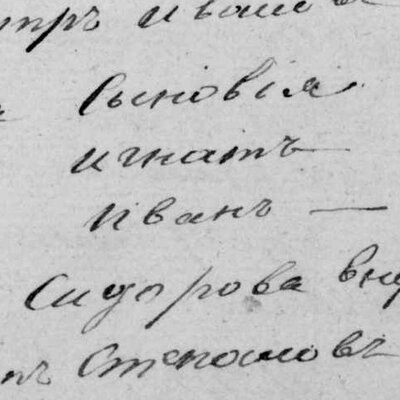 тръ иванов
сыновiя
игнатъ
иванъ —
Сидорова вну
нъ Степановъ